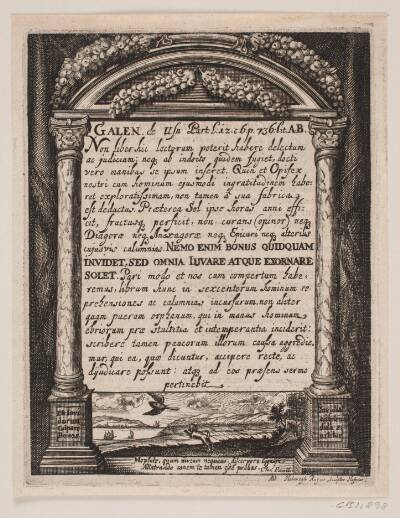 GALEN. de Usu Part. l. 2. c. 6. p. 736. lit. AB.
Non liber hic doctorum poterit habere delectum
ac judicium; neq. ab indocto quidem fugiet, docti
vero manibus se ipsum inseret. Quin et Opifex
nostri cum hominum ejusmodi ingratitudinem habe-
ret exploratissimam, non tamen à sua fabrica
est deductus. Præterea Sol ipse horas anni effi-
cit, fructusq. perficit, non curans (opinor) neq.
Diagoræ neq. Anaxagoræ neq. Epicuri neq. alterius
cujusvis calumnias. NEMO ENIM BONUS QUIDQUAM
INVIDET, SED OMNIA IUVARE ATQUE EXORNARE
SOLET. Pari modo et nos cum compertum habe-
remus, librum hunc in sexcentorum hominum re-
prehensiones ac calumnias incursurum, non aliter
quam puerum orphanum, qui in manus hominum
ebriorum præ stultitia et intemperantia inciderit:
scribere tamen paucorum illorum caussa aggredie-
mur, qui ea, quæ dicuntur, accipere recte, ac
dijudicare possunt: atq. ad eos præsens sermo
pertinebit